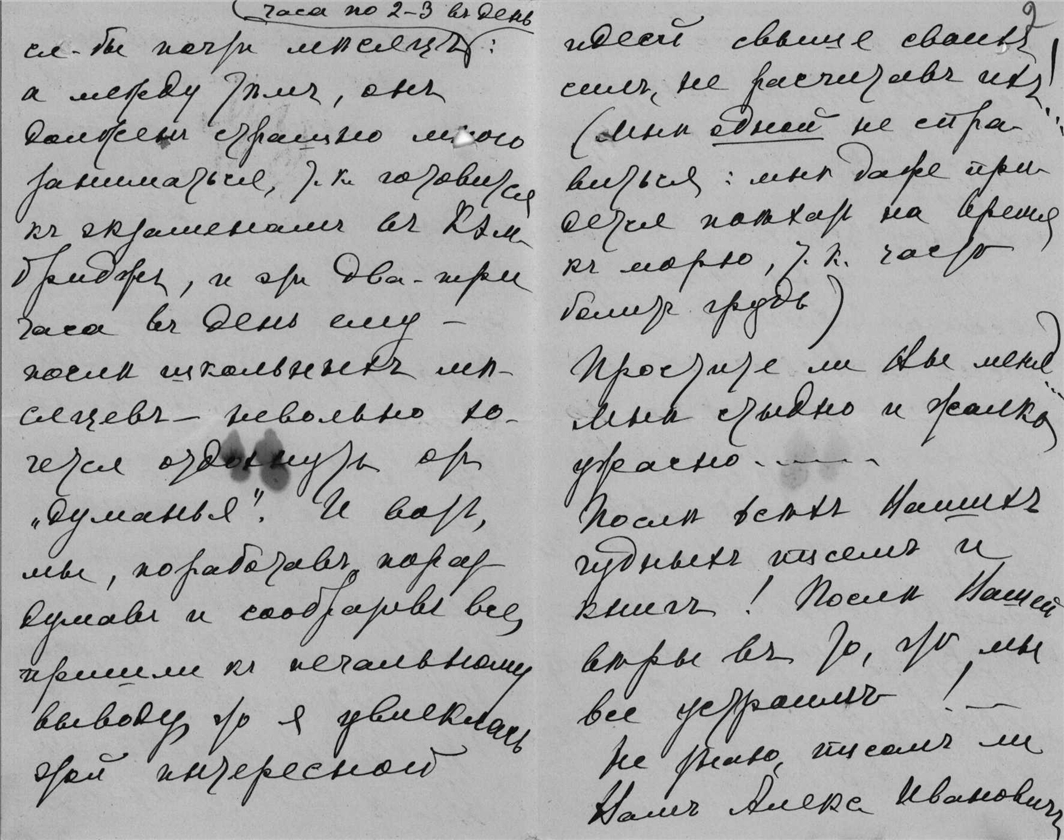 (часа по 2-3 въ день
ся-бы почти мѣсяцъ) :
а между тѣмъ, онъ
долженъ страшно много
заниматься, т.к. готовится
къ экзаменамъ въ Кэм-
бриджъ, и эти два-три
часа въ день ему –
послѣ школьныхъ мѣ-
сяцевъ – невольно хо-
чется отдохнуть от
„думанья“. И вот,
мы, поработавъ, пораз
думавъ и сообразивъ все,
пришли къ печальному
выводу, что я увлеклась
этой интересной
2
идеей свыше своихъ
силъ, не расчитавъ ихъ!
(Мнѣ одной не спра-
виться : мнѣ даже при-
дется поѣхать на время
къ морю, т.к. часто
болитъ грудь)
Простите ли Вы меня
Мнѣ стыдно и жалко,
ужасно. – – –
Послѣ всѣхъ Вашихъ
чудныхъ писемъ и
книгъ ! Послѣ Вашей
вѣры въ то, что мы
все устроимъ ! –
Не знаю, писалъ ли
Вамъ Алекс Ивановичъ